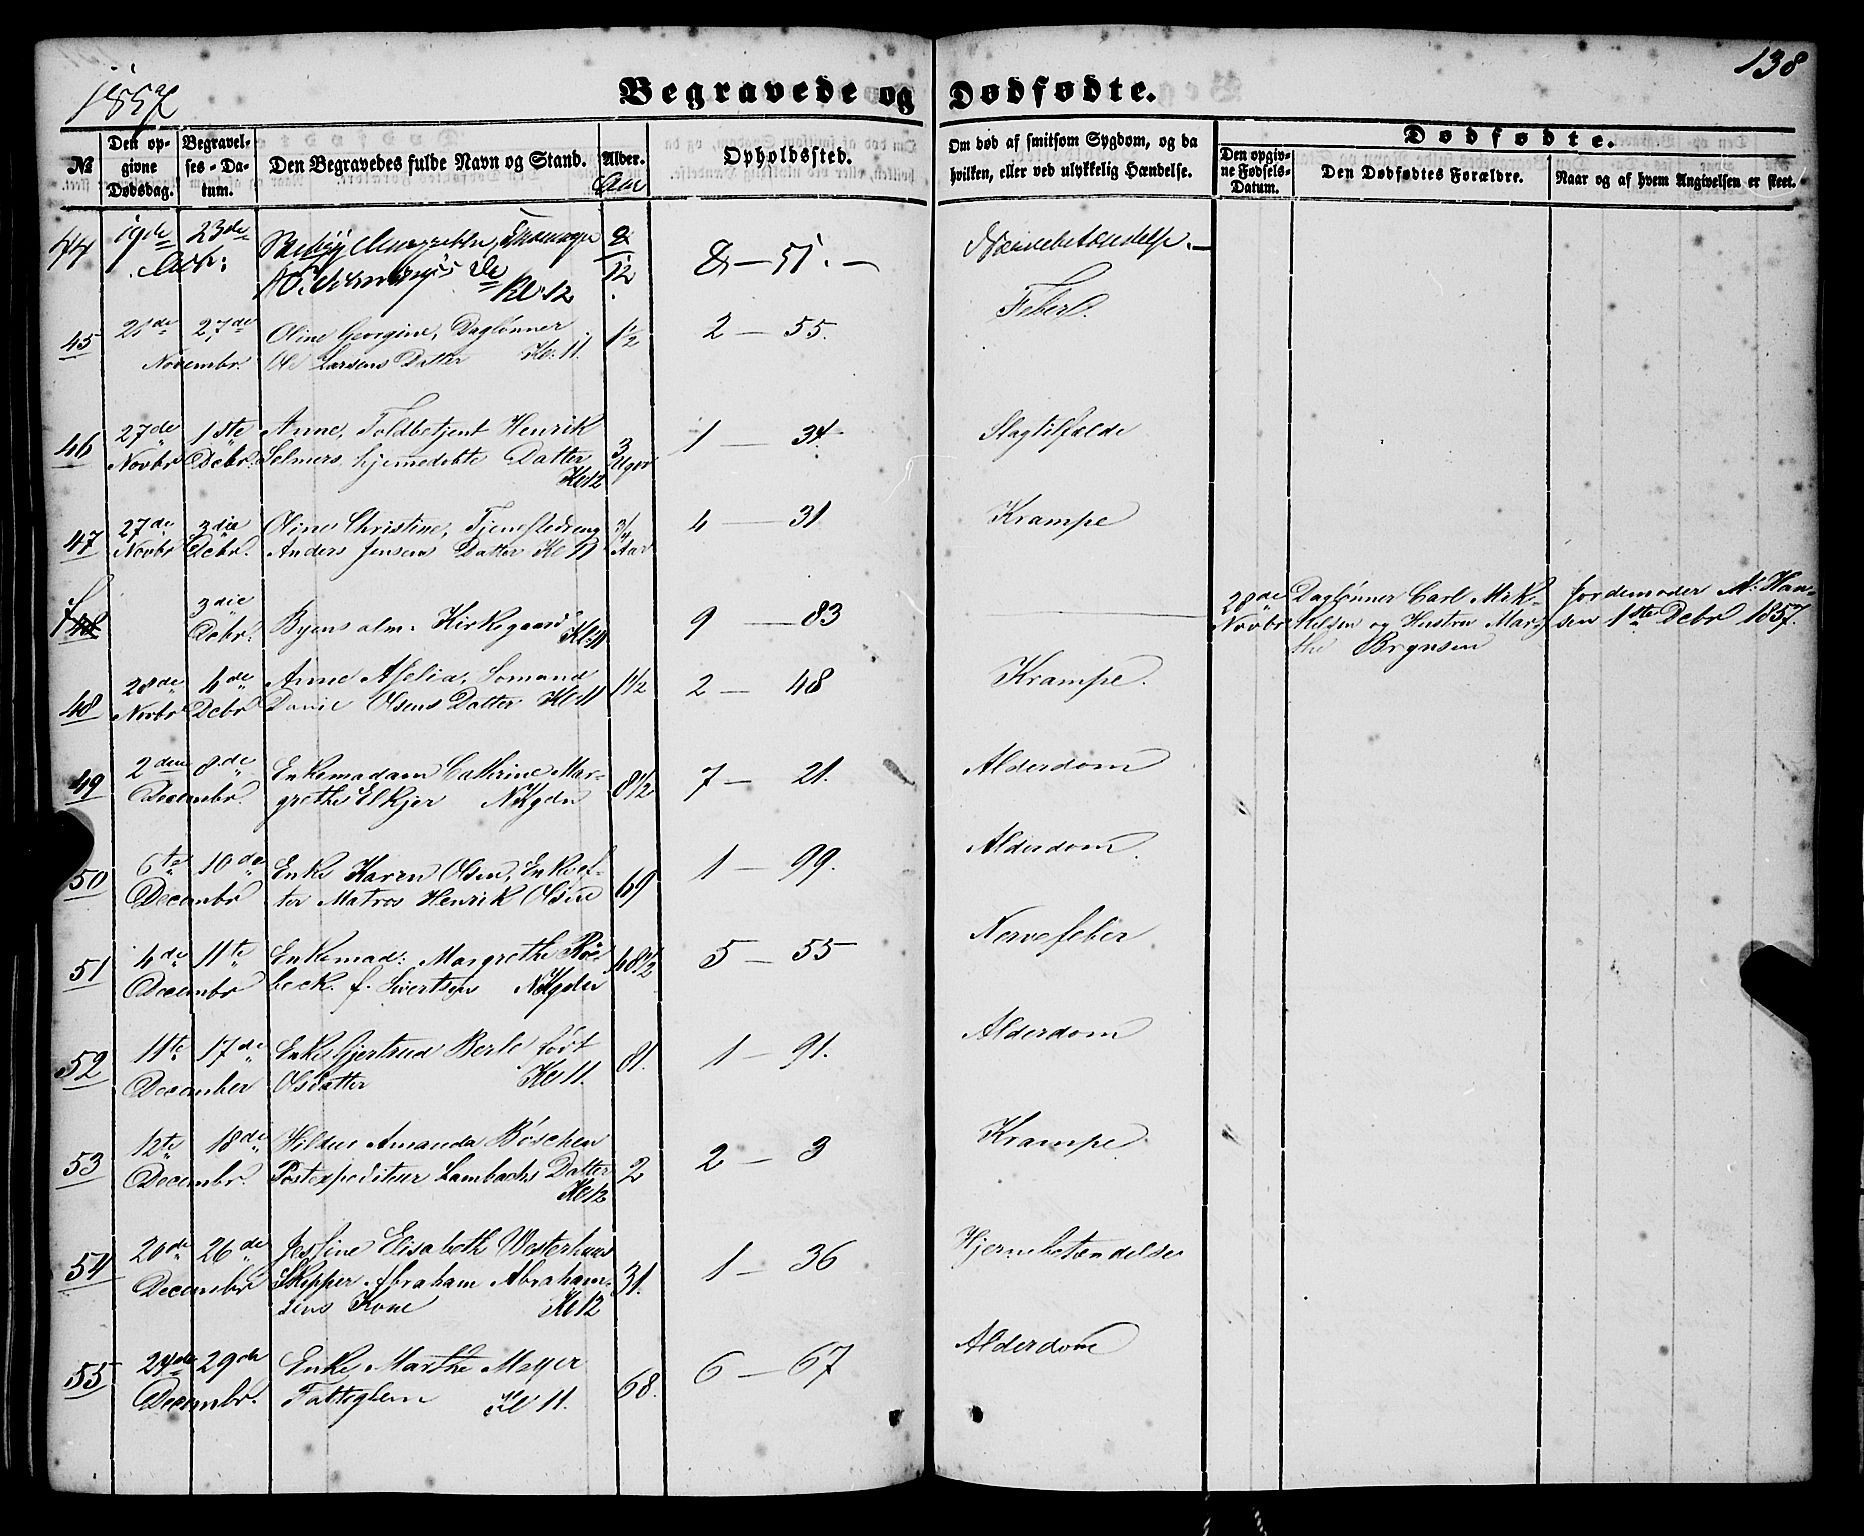 1857
138
Begravede og Dødfødte.
№
Den opgivne Dødsdag.
Begravelses-Datum.
Den Begravedes fulde Navn og Stand.
Alder.
Aar
Opholdssted.
Om død af smitsom Sygdom, og da hvilken, eller ved ulykkelig Hændelse.
Dødfødte.
Den opgivne Fødsels-Datum.
Den Dødfødtes Forældre.
Naar og af hvem Angivelsen er skeet.
44 19de 23de
Kl: 12 8/12 8 — 51. —
45 21de 27de Oline Georgine, Daglønner 1½ 2 — 55. Feber.
Novembr. Ole Larsens Datter Kl: 11.
46 27de 1ste Anne, Toldbetjent Henrik 3 1 — 34. Slagtilfælde
Novbr Debr. Selmers hjemmedøbte Datter Uger
Kl 12
47 27de 3die Oline Christine, Tjenestedreng ¾ 4 — 31 Krampe
Novbr Debr. Anders Jensens Datter Kl 11 Aar
48 3die 28de Daglønner Carl Mik- Jordemoder M. Han-
Debr. Byens alm. Kirkegaard Kl: 11 9 — 83 Novbr kelsen og Hustru Mar- sen 1ste Debr 1857.
the Brynsen
48 28de 4de Anne Aselia, Sømand 1½ 2 — 48 Krampe.
Novbr Debr Olsens Datter Kl 11
49 2den 8de Enkemadam Cathrine Mar- 81½ 7 — 21. Alderdom
Decembr. grethe Elkjer
50 6te 10de Enke Karen Olsen, Enke ef- 69 1 — 99. Alderdom.
Decembr ter Matros Henrik Olsen
51 4de 11te Enkemad: Margrethe Röe- 48½ 5 — 55 Nervefeber
Decembr beck f. Sivertsen
52 11te 17de Enke Gjertrud Berle født 81. 1 — 91. Alderdom
December Olsdatter Kl 11.
53 12te 18de Hilda Amanda Böschen 2 2 — 3 Krampe.
Decembr. Postexpediteur Lambachs Datter
Kl 12
54 20de 26de Jesfine Elisabeth Westerhaus 31. 1 — 36 Hjernebetændelse
Decembr Skipper Abraham Abraham-
sens Kone Kl 12
55 24de 29de Enke Marthe Meyer 68. 6 — 67 Alderdom
Decembr. Fattiglem Kl 11.